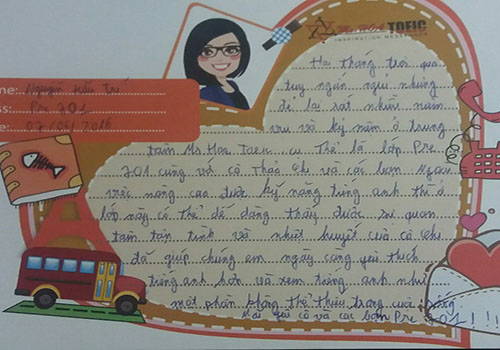 Ms. HOA TOEIC
me: Nguyễn Hữu Trí
ss: Pre 201
e: 07/04/2016
Hai tháng trôi qua
tuy ngắn ngủi nhưng
để lại rất nhiều niềm
vui và kỷ niệm ở trung
tâm Ms Hoa Toeic cụ thể là lớp Pre
201 cùng với cô Thảo Chi và các bạn. Ngoài
việc nâng cao được kỹ năng tiếng anh thì ở
lớp này có thể dễ dàng thấy được sự quan
tâm tận tình và nhiệt huyết của cô Chi
đã giúp chúng em ngày càng yêu thích
tiếng anh hơn và xem tiếng anh như
một phần không thể thiếu trong cuộc sống.
Mãi yêu cô và các bạn Pre 201!!!